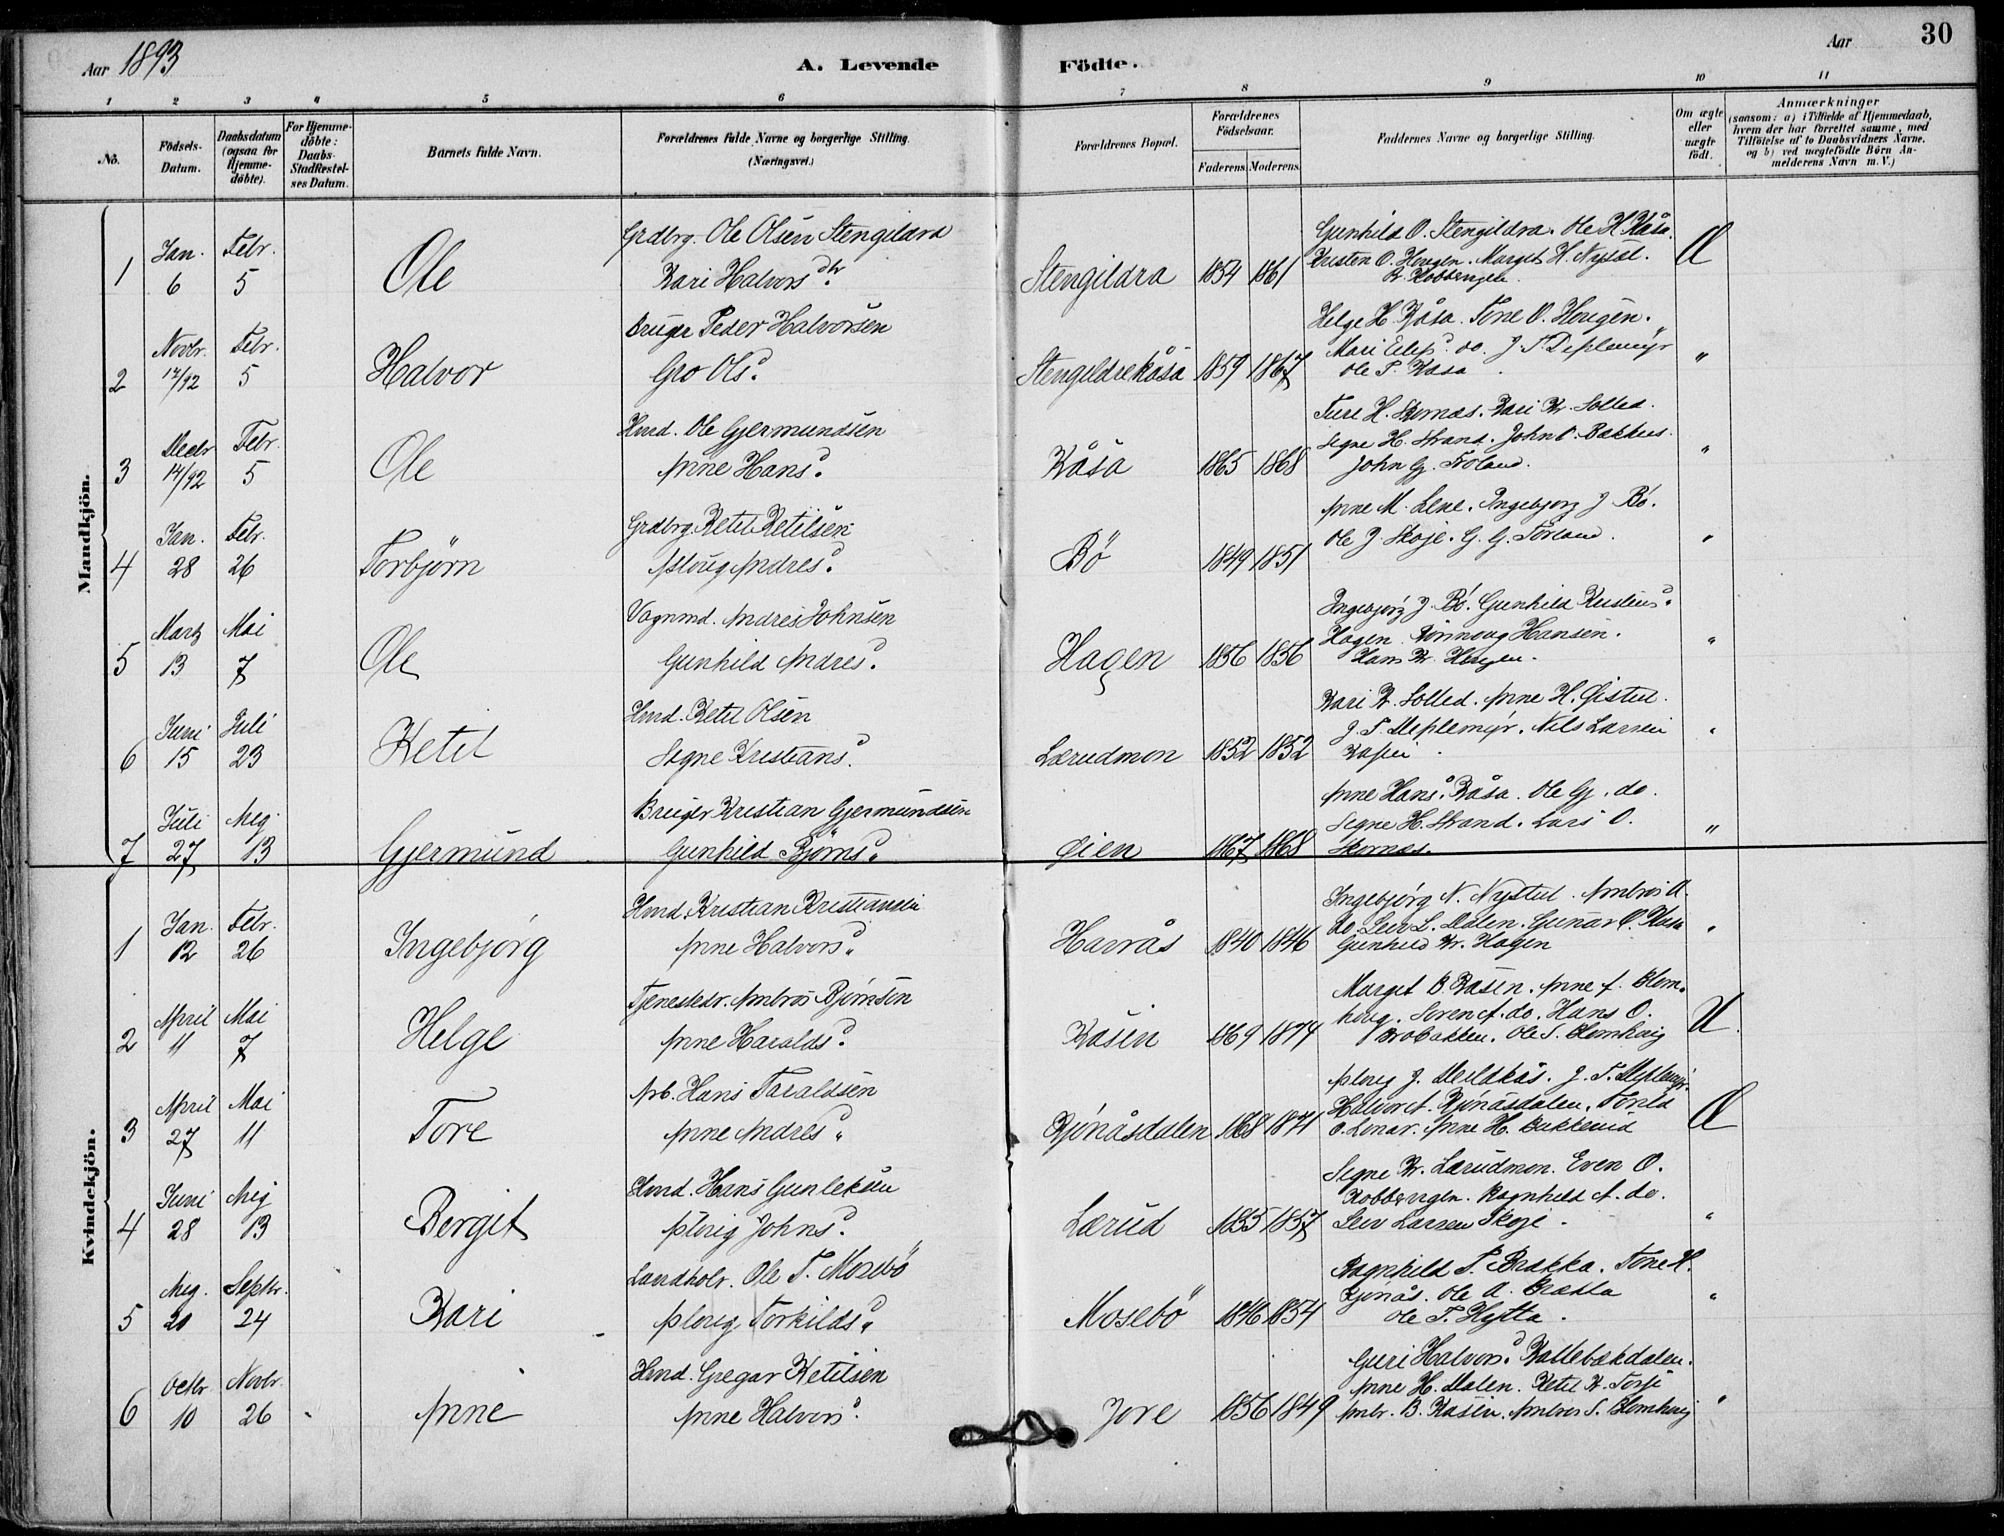 Aar 1893
A. Levende Födte.
Aar
30
1 2 3 4 5 6 7 8 9 10 11
No.
Födsels-Datum.
Daabsdatum (ogsaa for Hjemme-döbte).
For Hjemme-döbte: Daabs-Stadfæstel-ses Datum.
Barnets fulde Navn.
Forældrenes fulde Navne og borgerlige Stilling. (Næringsvei.)
Forældrenes Bopæl.
Forældrenes Födselsaar.
Faderens. Moderens.
Faddernes Navne og borgerlige Stilling.
Om ægte eller uægte födt.
Anmærkninger
(saasom: a) i Tilfælde af Hjemmedaab, hvem der har forrettet samme, med Tilföielse af to Daabsvidners Navne. og b) ved uægtefödte Börn An-melderens Navn m. V.)
Mandkjön.
1 Jan. 6 Febr. 5 Ole
Grdbrg. Ole Olsen Stengildra
Kari Halvorsdtr.
Stengildra 1854 1861
Gunhild O. Stengildra. Ole H. Kåsa.
Kristen O. Haugen. Marget H. Nystöl.
Æ
2 Novbr. 14/92 Febr. 5 Halvor
Bruger Peder Halvorsen
Gro Olsd.
Stengildrekåsa 1859 1867
Helge H. Kåsa. Tone O. Haugen.
Ole P. Kåsa.
"
3 Decbr 14/92 Febr. 5 Ole
Hmd. Ole Gjermundsen
Anne Hansd.
Kåsa 1865 1868
Signe H. Strand. John O. Bakkus.
John Gj. Froland.
"
4 Jan. 28 Febr. 26 Torbjörn
Grdbrg. Ketil Ketilsen
Aslaug Andresd.
Bö 1849 1851
Anne M. Lene. Ingebjorg J. Bö.
Ole J. Skoje. G. G. Torland.
"
5 Marts 13 Mai 7 Ole
Vognmd. Andres Johnsen
Gunhild Andresd.
Hagen 1856 1856
Ingebjörg J. Bö. Gunhild Kristensd.
Hagen. Rönnoug Hansen.
Hans Kr. Haugen.
"
6 Juni 15 Juli 23 Ketil
Hmd. Ketil Olsen
Signe Kristiansd.
Lærudmon 1852 1852
Kari K. Solled. Anne H. Öistul.
Nils Larsen
"
7 Juli 27 Aug. 13 Gjermund
Bruger Kristian Gjermundsen
Gunhild Björnsd.
Öien 1867 1868
Anne Hansd. Kåsa. Ole Gj. do.
Signe H. Strand. Lars O.
Skornæs.
"
Kvindekjön.
1 Jan. 12 Febr. 26 Ingebjörg
Hmd. Kristian Kristiansen
Anne Halvorsd.
Havrås 1840 1846
Ingebjörg N. Nystul. Ambros A.
do. Leiv L. Dalen. Gunar O. Kåsa
Gunhild Kr. Hagen
"
2 April 11 Mai 7 Helge
Tjenestedr. Ambros Björnsen
Anne Haraldsd.
Kåsin 1869 1874
Marget B. Kåsin. Anne A. Blom-
haug. Soren A. do. Hans O.
Brobakken. Ole S. Blomhaug
U.
3 April 27 Mai 11 Tore
Arb. Hans Taraldsen
Anne Andresd.
Rjönåsdalen 1868 1871
Halvor A. Rjönåsdalen.
Anne H. Bakkerud
Æ
4 Juni 28 Aug 13 Bergit
Hmd. Hans Gunleksen
Aslaug Johnsd.
Lærud 1855 1857
Signe Kr. Lærudmon. Even O.
Kobbervigen. Ragnhild A. do.
Leiv Larsen Skoje.
"
5 Aug. 20 Septbr. 24 Kari
Landhdlr. Ole T. Mosebö
Aslaug Torkildsd.
Mosebö 1846 1854
Ragnhild T. Brakka. Tone H.
Rjönås. Ole A. Brakka
Ole T. Hytta.
"
6 Octbr. 10 Novbr. 26 Anne
Hmd. Gregar Ketilsen
Anne Halvorsd.
Jore 1856 1849
Guri Halvorsd. Kallebækdalen.
Anne H. Dalen. Ketil K. Torsje
Ambr. B. Kåsin. Ambros S. Blomhaug
"